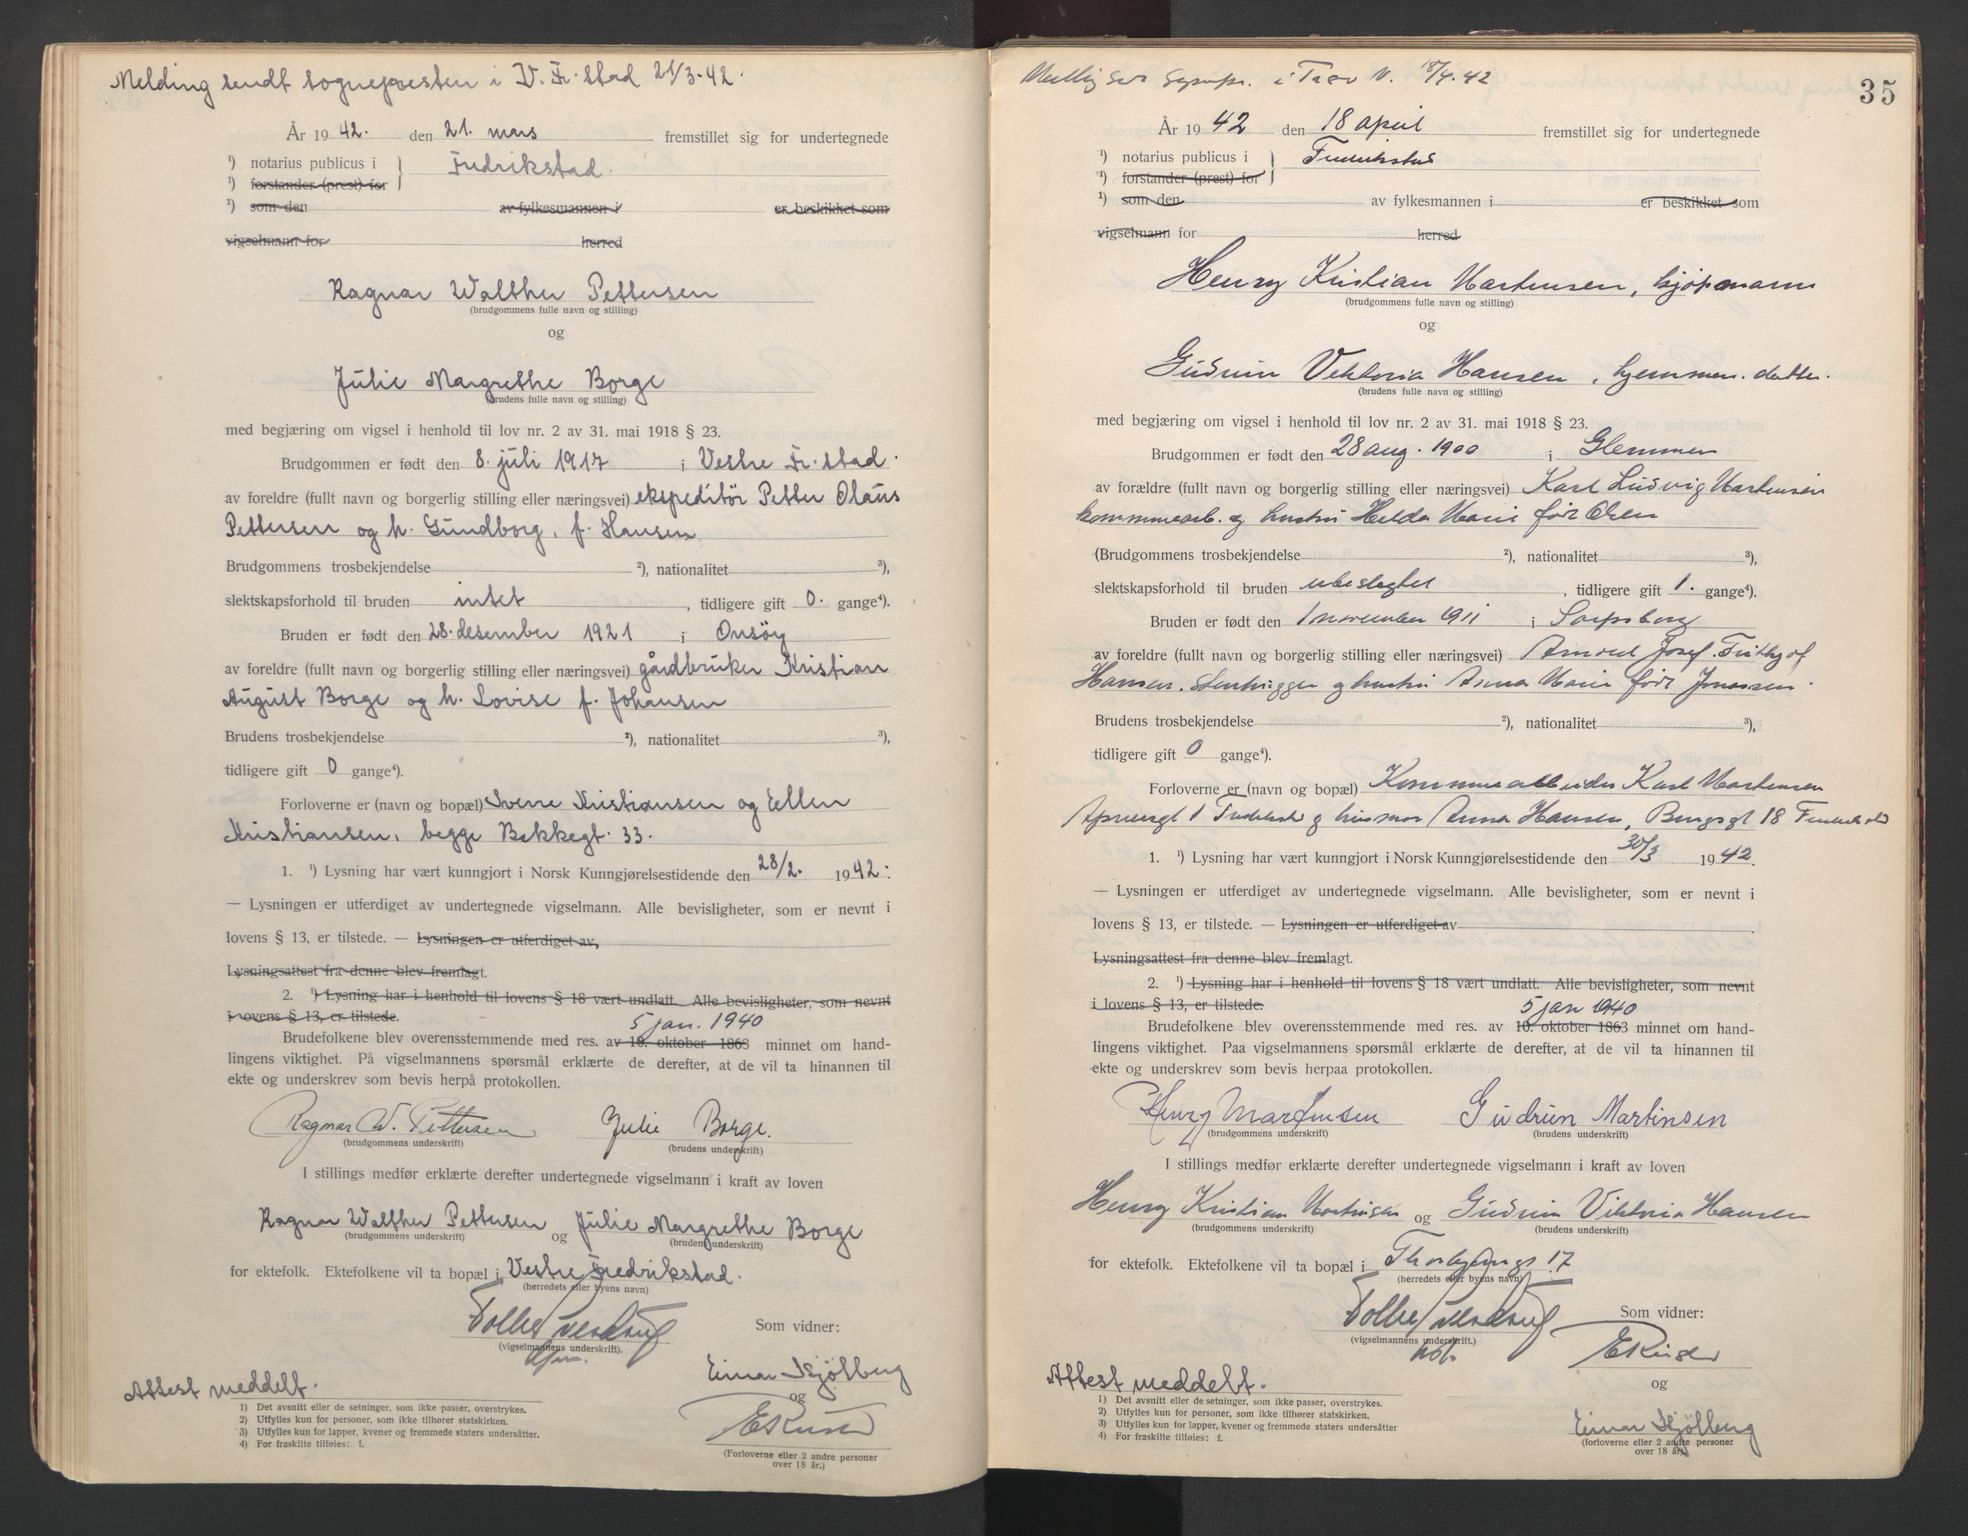 Melding sendt sognepresten i V. Fr.stad 21/3-42.
År 1942. den 21. mars fremstillet sig for undertegnede
¹) notarius publicus i } Fredrikstad.
¹) forstander (prest) for
¹) som den av fylkesmannen i er beskikket som
vigselmann for herred
Ragnar Walther Pettersen
(brudgommens fulle navn og stilling)
og
Julie Margrethe Borge
(brudens fulle navn og stilling)
med begjæring om vigsel i henhold til lov nr. 2 av 31. mai 1918 § 23.
Brudgommen er født den 8. juli 1917 i Vestre Fr.stad.
av foreldre (fullt navn og borgerlig stilling eller næringsvei) ekspeditör Petter Olaus
Pettersen og h. Gundborg, f. Hansen
Brudgommens trosbekjendelse ²), nationalitet ³),
slektskapsforhold til bruden intet, tidligere gift 0. gange⁴).
Bruden er født den 28. desember 1921 i Onsöy
av foreldre (fullt navn og borgerlig stilling eller næringsvei) gårdbruker Kristian
August Borge og h. Lovise f. Johansen
Brudens trosbekjendelse ²), nationalitet ³),
tidligere gift 0 gange⁴).
Forloverne er (navn og bopæl) Sverre Kristiansen og Ellen
Kristiansen, begge Bakkegt. 33.
1. ¹) Lysning har vært kunngjort i Norsk Kunngjørelsestidende den 28/2. 1942.
— Lysningen er utferdiget av undertegnede vigselmann. Alle bevisligheter, som er nevnt i
lovens § 13, er tilstede. — Lysningen er utferdiget av,
Lysningsattest fra denne blev fremlagt.
2. ¹) Lysning har i henhold til lovens § 18 vært undlatt. Alle bevisligheter, som nevnt
i lovens § 13, er tilstede.
5 jan. 1940
Brudefolkene blev overensstemmende med res. av 10. oktober 1863 minnet om hand-
lingens viktighet. På vigselmannens spørsmål erklærte de derefter, at de vil ta hinannen til
ekte og underskrev som bevis herpå protokollen.
Ragnar W. Pettersen Julie Borge.
(brudgommens underskrift) (brudens underskrift)
I stillings medfør erklærte derefter undertegnede vigselmann i kraft av loven
Ragnar Walther Pettersen og Julie Margrethe Borge
(brudgommens underskrift) (brudens underskrift)
for ektefolk. Ektefolkene vil ta bopæl i Vestre Fredrikstad.
(herredets eller byens navn)
Som vidner:
(vigselmannens underskrift).
Einar Kjölberg
Attest meddelt. og
1) Det avsnitt eller de setninger, som ikke passer, overstrykes.
2) Utfylles kun for personer, som ikke tilhører statskirken.
3) Utfylles kun for lapper, kvener og fremmede staters undersåtter.
4) For fraskilte tilføies: f.
(Forloverne eller 2 andre personer
over 18 år.)
i V. 18/4.42
35
År 1942 den 18 april fremstillet sig for undertegnede
¹) notarius publicus i } Fredrikstad
¹) forstander (prest) for
¹) som den av fylkesmannen i er beskikket som
vigselmann for herred
Henry Kristian Martinsen, kjöpmann
(brudgommens fulle navn og stilling)
og
Gudrun Viktoria Hansen, hjemmev. datter.
(brudens fulle navn og stilling)
med begjæring om vigsel i henhold til lov nr. 2 av 31. mai 1918 § 23.
Brudgommen er født den 28 aug. 1900 i Glemmen
av forældre (fullt navn og borgerlig stilling eller næringsvei) Karl Ludvig Martinsen
kommunearb. og hustru Hilda Marie før Olsen
(Brudgommens trosbekjendelse ²), nationalitet ³),
slektskapsforhold til bruden ubeslegtet, tidligere gift 1. gange⁴).
Bruden er født den 1 november 1911 i Sarpsborg
av foreldre (fullt navn og borgerlig stilling eller næringsvei) Arnold Josef Fritjof
Hansen. stenhugger og hustru Anna Marie før Jonassen.
Brudens trosbekjendelse ²), nationalitet ³),
tidligere gift 0 gange⁴).
Forloverne er (navn og bopæl) Kommunearbeider Karl Martinsen
1 Fredrikstad og husmor Anna Hansen, 18 Fredrikstad
1. ¹) Lysning har vært kunngjort i Norsk Kunngjørelsestidende den 30/3 1942.
— Lysningen er utferdiget av undertegnede vigselmann. Alle bevisligheter, som er nevnt i
lovens § 13, er tilstede. — Lysningen er utferdiget av
Lysningsattest fra denne blev fremlagt.
2. ¹) Lysning har i henhold til lovens § 18 vært undlatt. Alle bevisligheter, som nevnt
i lovens § 13, er tilstede.
5 jan 1940
Brudefolkene blev overensstemmende med res. av 10. oktober 1863 minnet om hand-
lingens viktighet. Paa vigselmannens spørsmål erklærte de derefter, at de vil ta hinannen til
ekte og underskrev som bevis herpaa protokollen.
Henry Martinsen Gudrun Martinsen
(brudgommens underskrift) (brudens underskrift)
I stillings medfør erklærte derefter undertegnede vigselmann i kraft av loven
Henry Kristian Martinsen og Gudrun Viktoria Hansen
(brudgommens underskrift) (brudens underskrift)
for ektefolk. Ektefolkene vil ta bopæl i 17
(herredets eller byens navn)
Som vidner:
(vigselmannens underskrift.)
Attest meddelt. og
1) Det avsnitt eller de setninger, som ikke passer, overstrykes.
2) Utfylles kun for personer, som ikke tilhører statskirken.
3) Utfylles kun for lapper, kvener og fremmede staters undersåtter
4) For fraskilte tilføies: f.
Einar Kjölberg
(forloverne eller 2 andre personer
over 18 år)